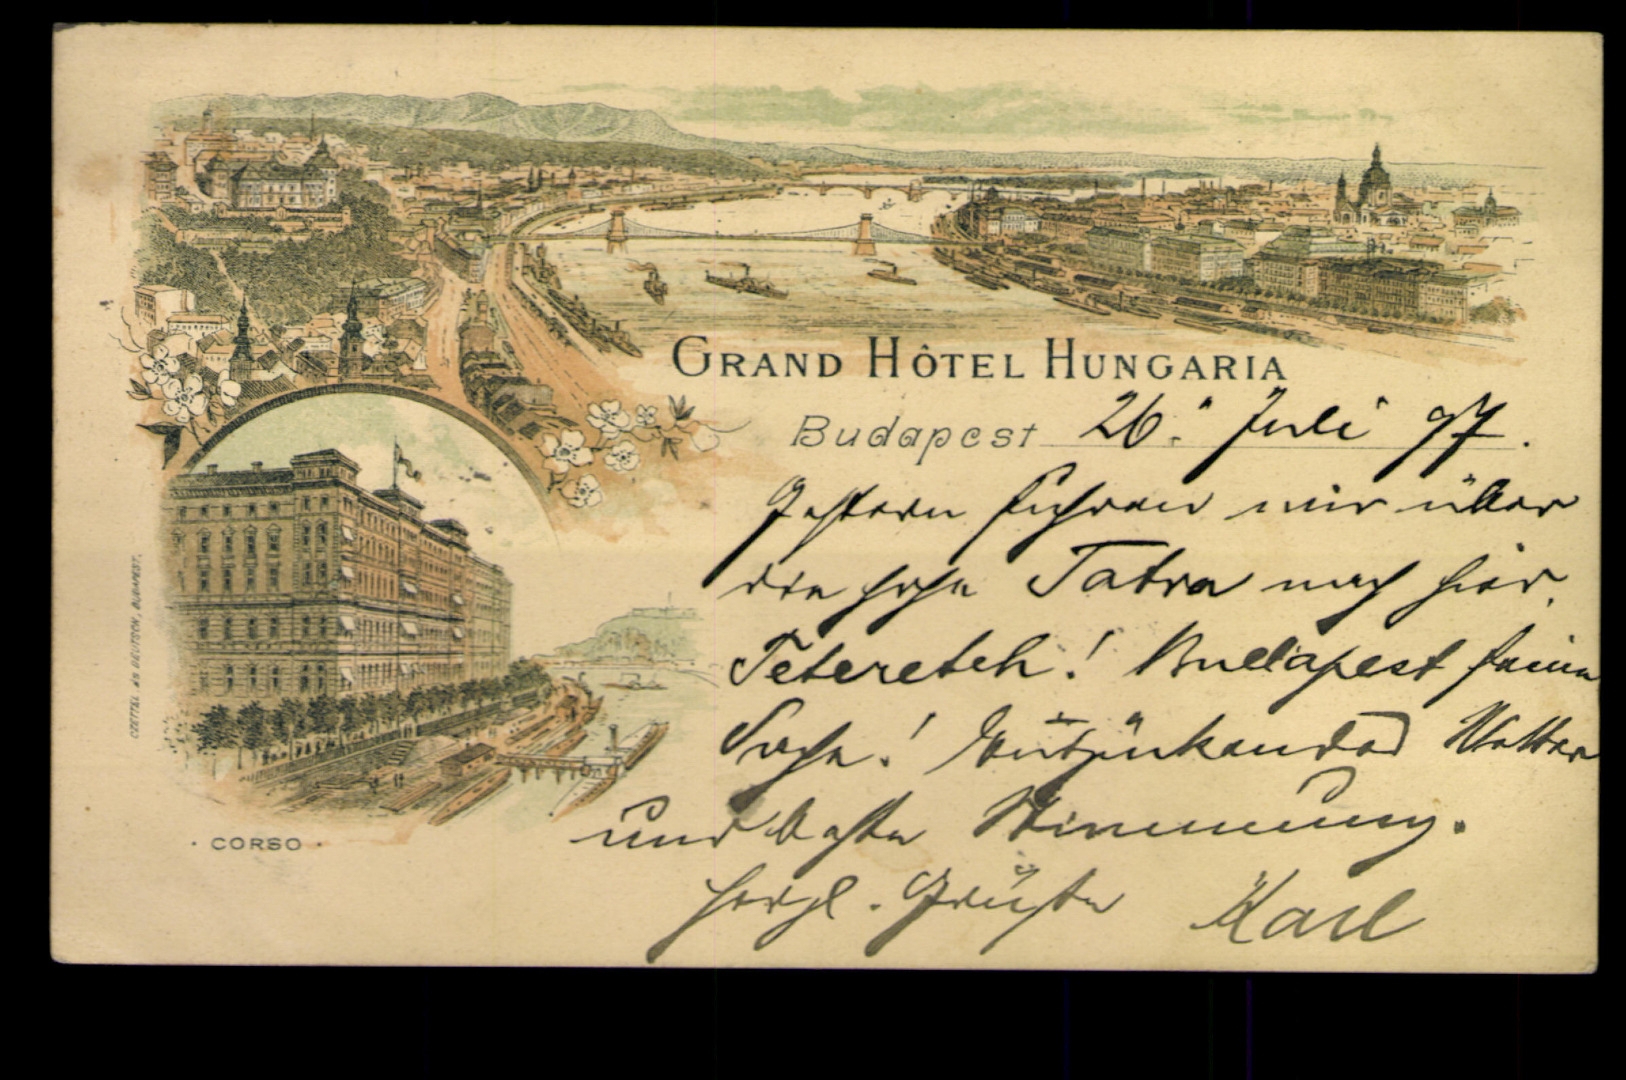 GRAND HÔTEL HUNGARIA
Budapest 26. Juli 97.
Gestern fuhren wir über
die hohe Tatra nach hier.
Budapest feine
Sache! Entzückendes Wetter
und beste Stimmung.
Herzl. Grüße Karl
· CORSO ·
CZETTEL ÉS DEUTSCH, BUDAPEST.